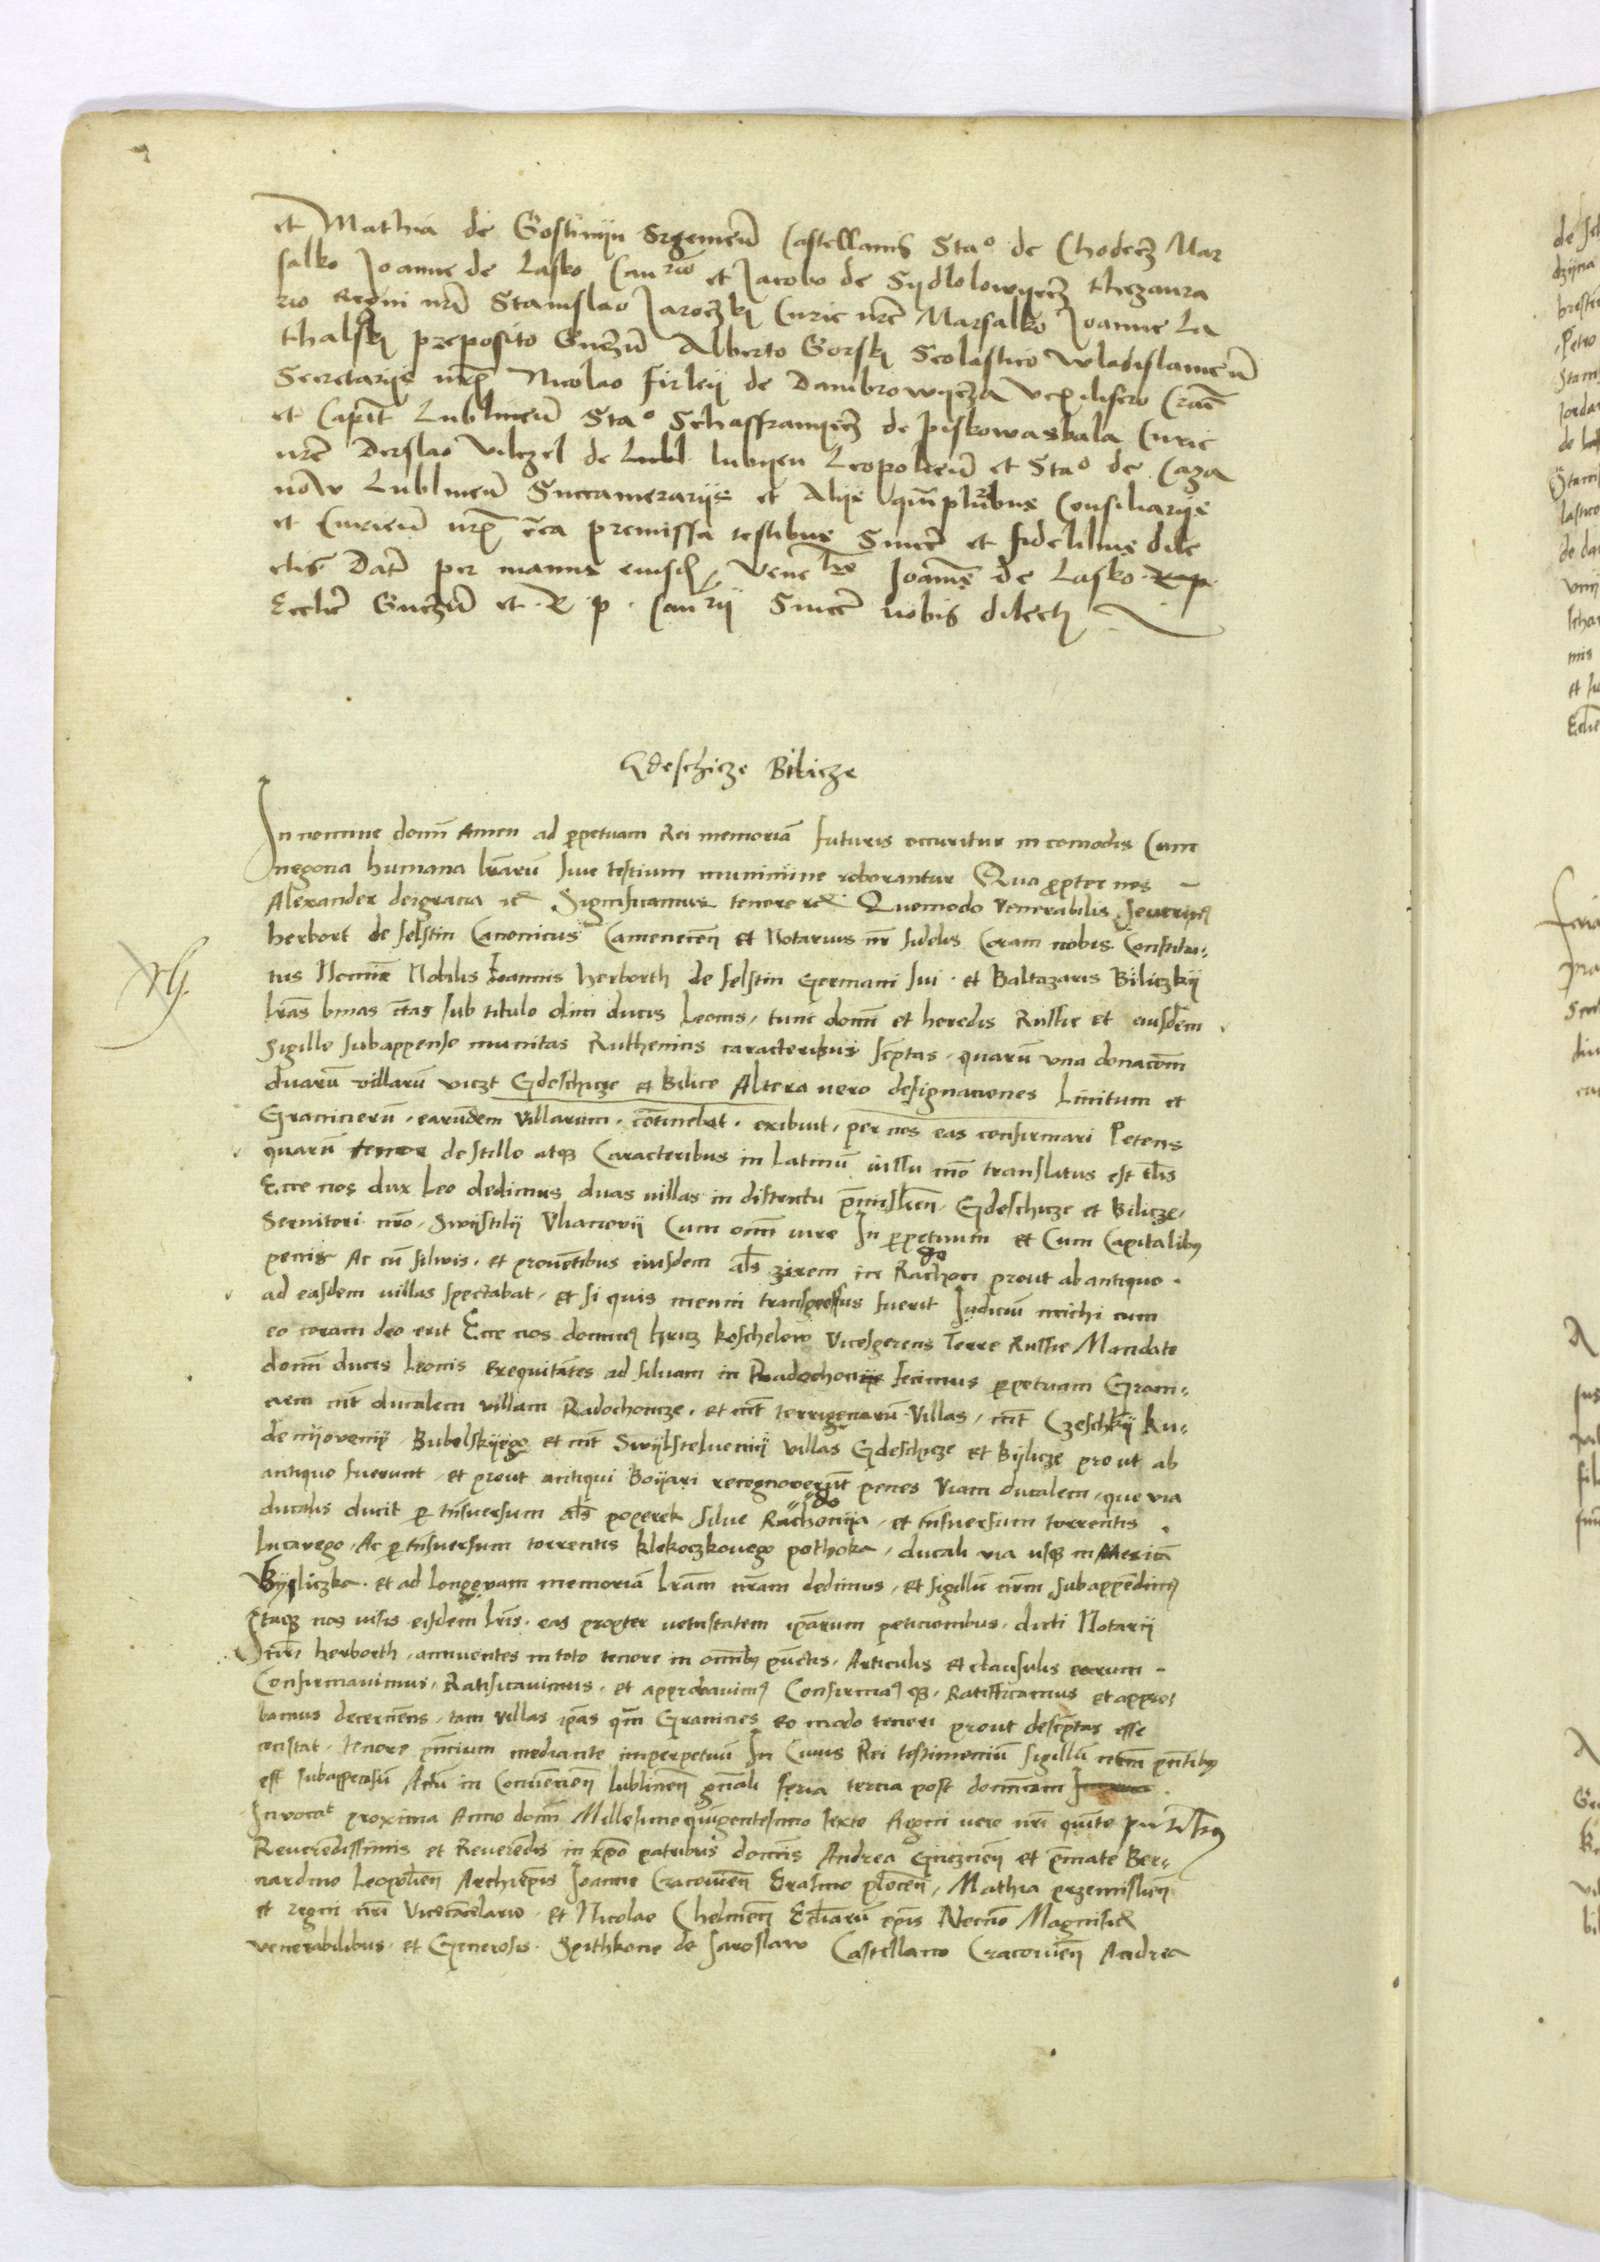 et Mathia de Gostinyn Srzemeń Castellanis Sta° de Chodecz Mar
salko Joanne de Lasko Canrio et Jacobo de Sydlolowyecz thezaura
rio Regni nri Stanislao Jaroczki Curie nre Marsalko Joanne La
thalski preposito Gnezneń Alberto Gorski Scolastico Wladislauień
Secretarijs nris Nicolao firleij de Dambrowycza vexilifero Craco
et Capit Lublineń Sta° Schaffranyecz de pyskowaskala Curie
nre Derslao vilczel de Lubl lubyen Leopolień et Sta° de Caza
now Lublineń Succamerarijs et Alijs qmpluribus Consiliarijs
et Curień nris circa premissa testibus Sincere et fidelibus dile
ctis Datum per manus eiusdem Vene Joannis de Lasko
Ecclie Gnezneń et R p Canrij Sincere nobis dilecti
Gdeschicze Bilicze
In nomine domi Amen ad ppetuam Rei memoriam futuris occuritur incomodis Cum
negocia humana lrarum sive testium munimine roborantur Qua propter nos
Alexander dei gracia etc Significamus tenore etc Quomodo Venerabilis Severinus
herbort de felstin Canonicus Camenecen et Notarius nr fidelis Coram nobis Constitu-
tus Nomine Nobilis Joannis herborth de felstin Germani sui et Baltazaris Biliczkij
lras binas certas sub titulo olim ducis Leonis, tunc domi et heredis Russie et eiusdem
Sigillo subappenso munitas Ruthenicis caracteribus scriptas quarum una donacom
duarum villarum viczt Gdeschicze et Bilice Altera vero designaciones Limitum et
Granicierum earundem villarum continebat exibuit, per nos eas confirmari Petens
quarum tenor de stillo atque Caracteribus in Latinum iussu nro translatus est talis
Ecce nos dux Leo dedimus duas villas in districtu premislien Gdeschicze et Bilicze
Servitori nro Swystilij Vhanovij Cum omni iure In ppetuum et Cum Capitalibus
penis Ac cum silvis et proventibus eiusdem als zirem in Radochon prout ab antiquo
ad easdem villas spectabat, et si quis memi transgressus fuerit Judicium michi cum
eo coram deo erit Ecce nos dominus hricz koschelow Vicesgerens Terre Russie Mandato
domi ducis Leonis exequitantes ad silvam in Radochonije fecimus ppetuam Grani-
ciem int ducalem villam Radochoncze et int terrigenarum villas, int Czeschkij ku-
demyovenij Bubelskyego et int Swystelvenij villas Gdeschicze et Bylicze prout ab
antiquo fuerunt, et prout antiqui Boyari recognoverunt penes viam ducalem, que via
ducalis ducit p tnsversum als poperek silve Radochonya, et tnsversum torrentis
Lucavego, Ac p tnsversum torrentis klokoczkovego pothoka, ducali via usque in Mericam
Byliczka. et ad longevam memoriam lram nram dedimus, et sigillum nrm subappendimus
Itaque nos visis eisdem lris eas propter vetustatem iparum peticionibus dicti Notarij
nri herborth annuentes in toto tenore in omnibus punctis, Articulis et clausulis earum
Confirmavimus, Ratificavimus, et approbavimus Confirmamusque, Ratifficamus et appro
bamus decernens, tam villas ipas qm Granicies eo modo teneri prout descriptas esse
constat, tenore pncium mediante imperpetuum In Cuius Rei testimonium sigillum nrm pntibus
est subappensum Actum in Convencion Lublinen gnali feria tercia post dominicam
Invocat proxima Anno domi Millesimo quingentesimo sexto Regni vero nri quinto pntibus
Reverendissimis et Reverendis in xpo patribus dominis Andrea Gneznen et pmate Ber-
nardino Leopolien Archiepis Joanne Cracovien Erasmo plocen, Mathia przemislien
et regni nri Vicecancelario et Nicolao Chelmen Ecliarum epis Necnon Magnificis
venerabilibus et Generosis Spithkone de Jaroslaw Castellano Cracovien Andrea